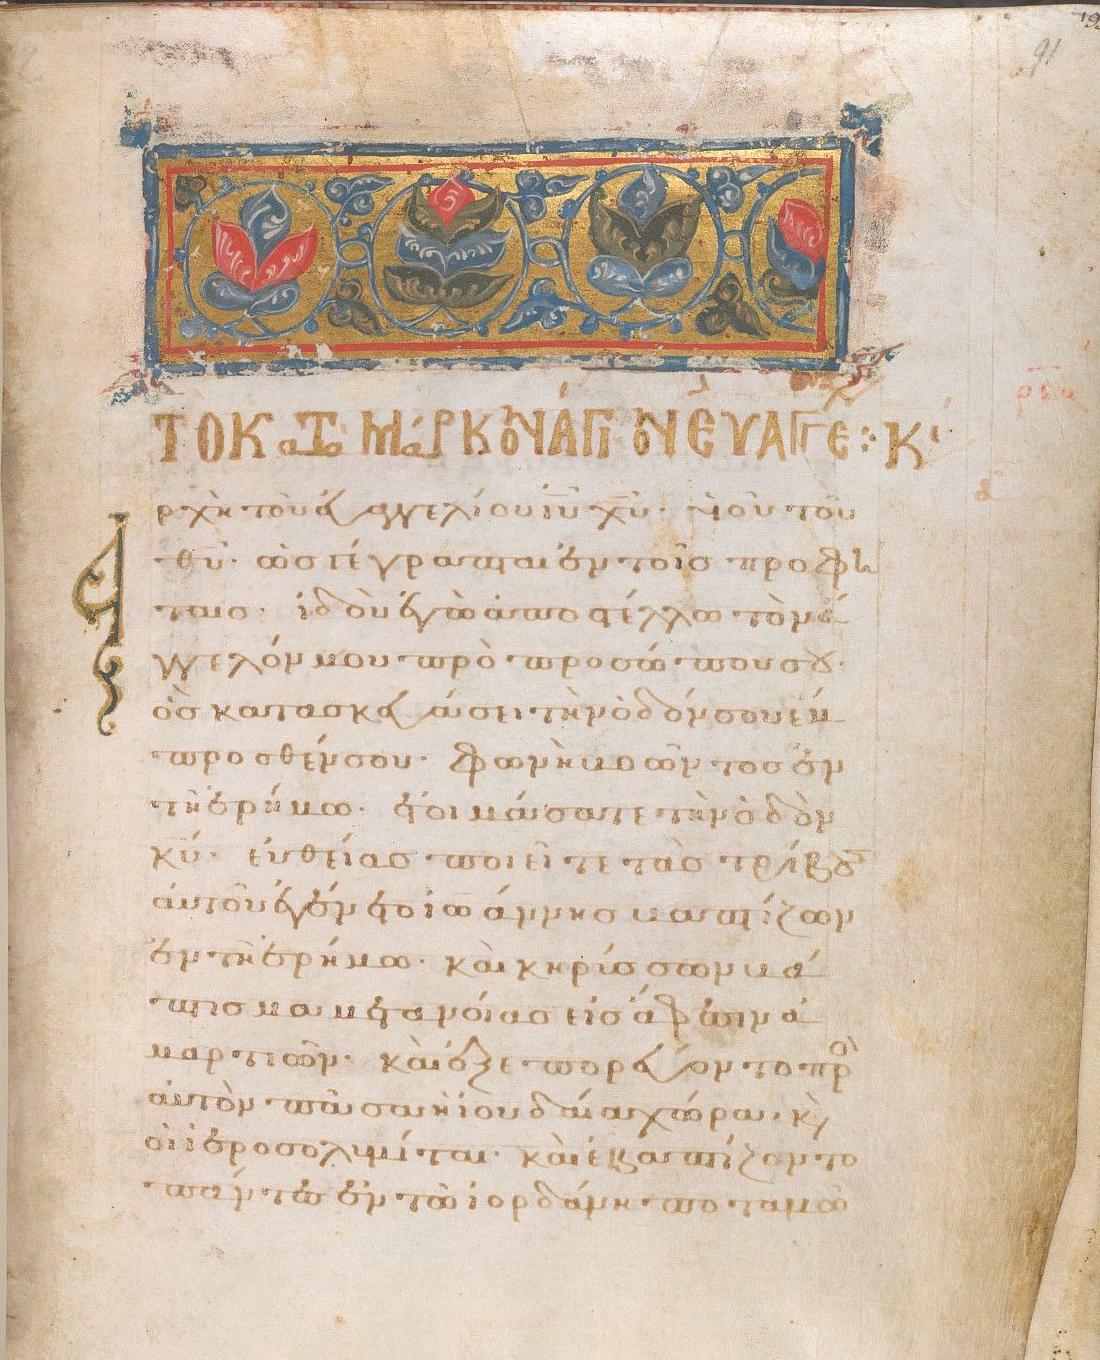 91
ΤΟ ΚΑΤΑ ΜΑΡΚΟΝ ΑΓΙΟΝ ΕΥΑΓΓΕ
Αρχὴ τοῦ εὐαγγελίου ἰῦ χῦ· υἱοῦ τοῦ
θῦ· ὡς γέγραπται ἐν τοῖς προφή
ταις· ἰδοὺ ἐγὼ ἀποστέλλω τὸν ἄ
γγελόν μου πρὸ προσώπου σου·
ὃς κατασκευάσει τὴν ὁδόν σου ἔμ
προσθέν σου· φωνὴ βοῶντος ἐν
τῆ ἐρήμω· ἑτοιμάσατε τὴν ὁδὸν
κῦ· εὐθείας ποιεῖτε τὰς τρίβους
αὐτοῦ ἐγένετο ἰω̄άννης βαπτίζων
ἐν τῆ ἐρήμω· καὶ κηρύσσων βά
πτισμα μετανοίας εἰς ἄφεσιν ἁ
μαρτιῶν· καὶ ἐξεπορεύοντο πρὸ
αὐτὸν πᾶσα ἡ ἰουδαία χώρα· κὶ
οἱ ἱεροσολυμίται· καὶ ἐβαπτίζοντο
πάντες ἐν τῶ ἰορδάνη ποταμῶ